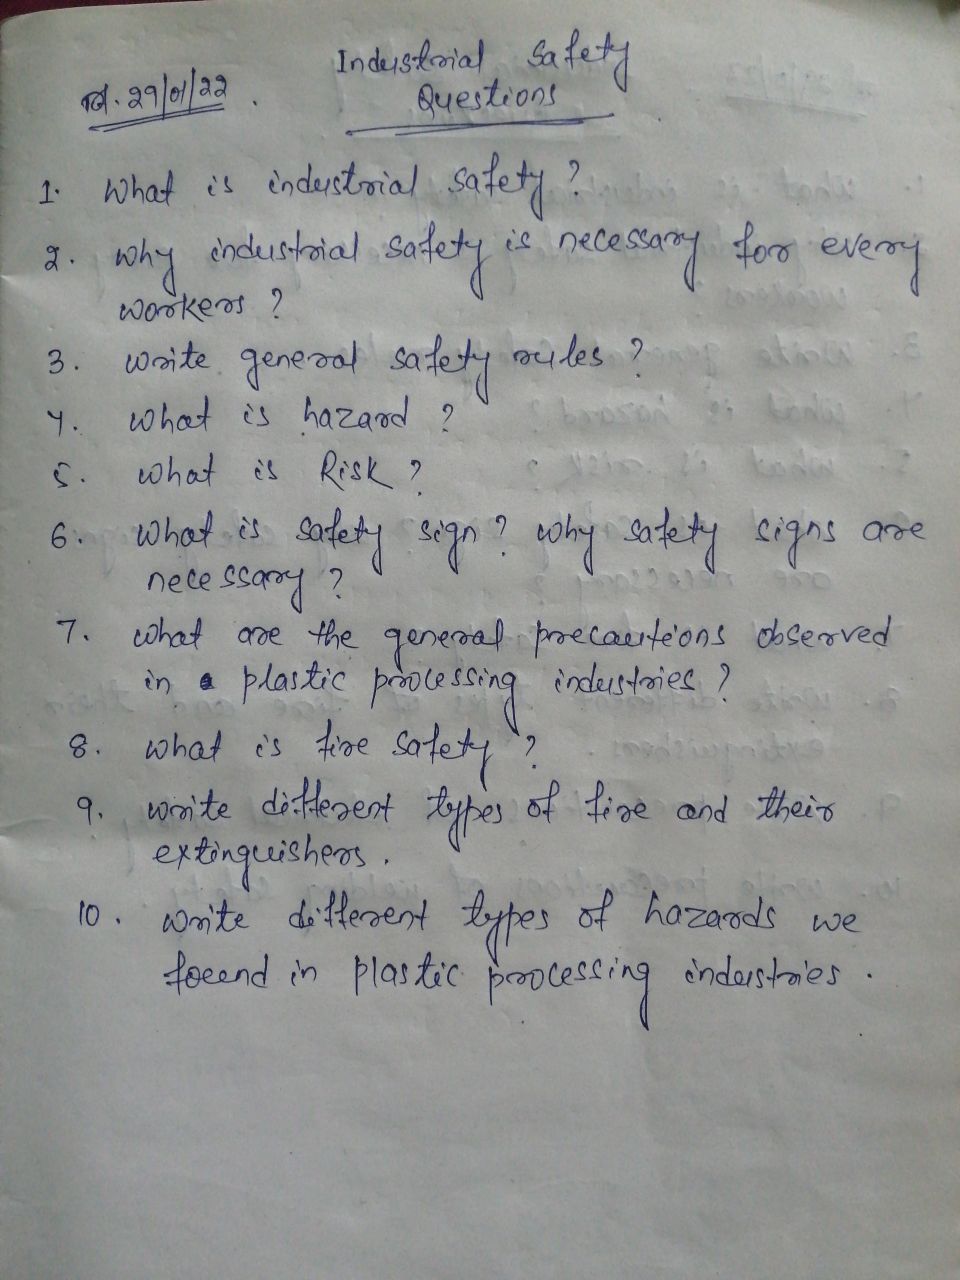 Industrial Safety
29/01/22
Questions
1. What is industrial safety?
2. Why industrial safety is necessary for every
workers?
3. Write general safety rules?
4. What is hazard?
5. What is Risk?
6. What is safety sign? Why safety signs are
necessary?
7. What are the general precautions observed
in plastic processing industries?
8. What is fire safety?
9. Write different types of fire and their
extinguishers.
10. Write different types of hazards we
found in plastic processing industries.